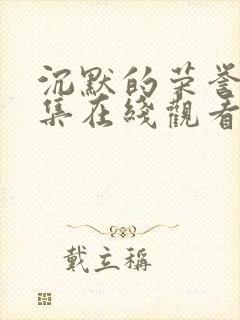 沉默的荣誉
集在綫觀看
戴立稱